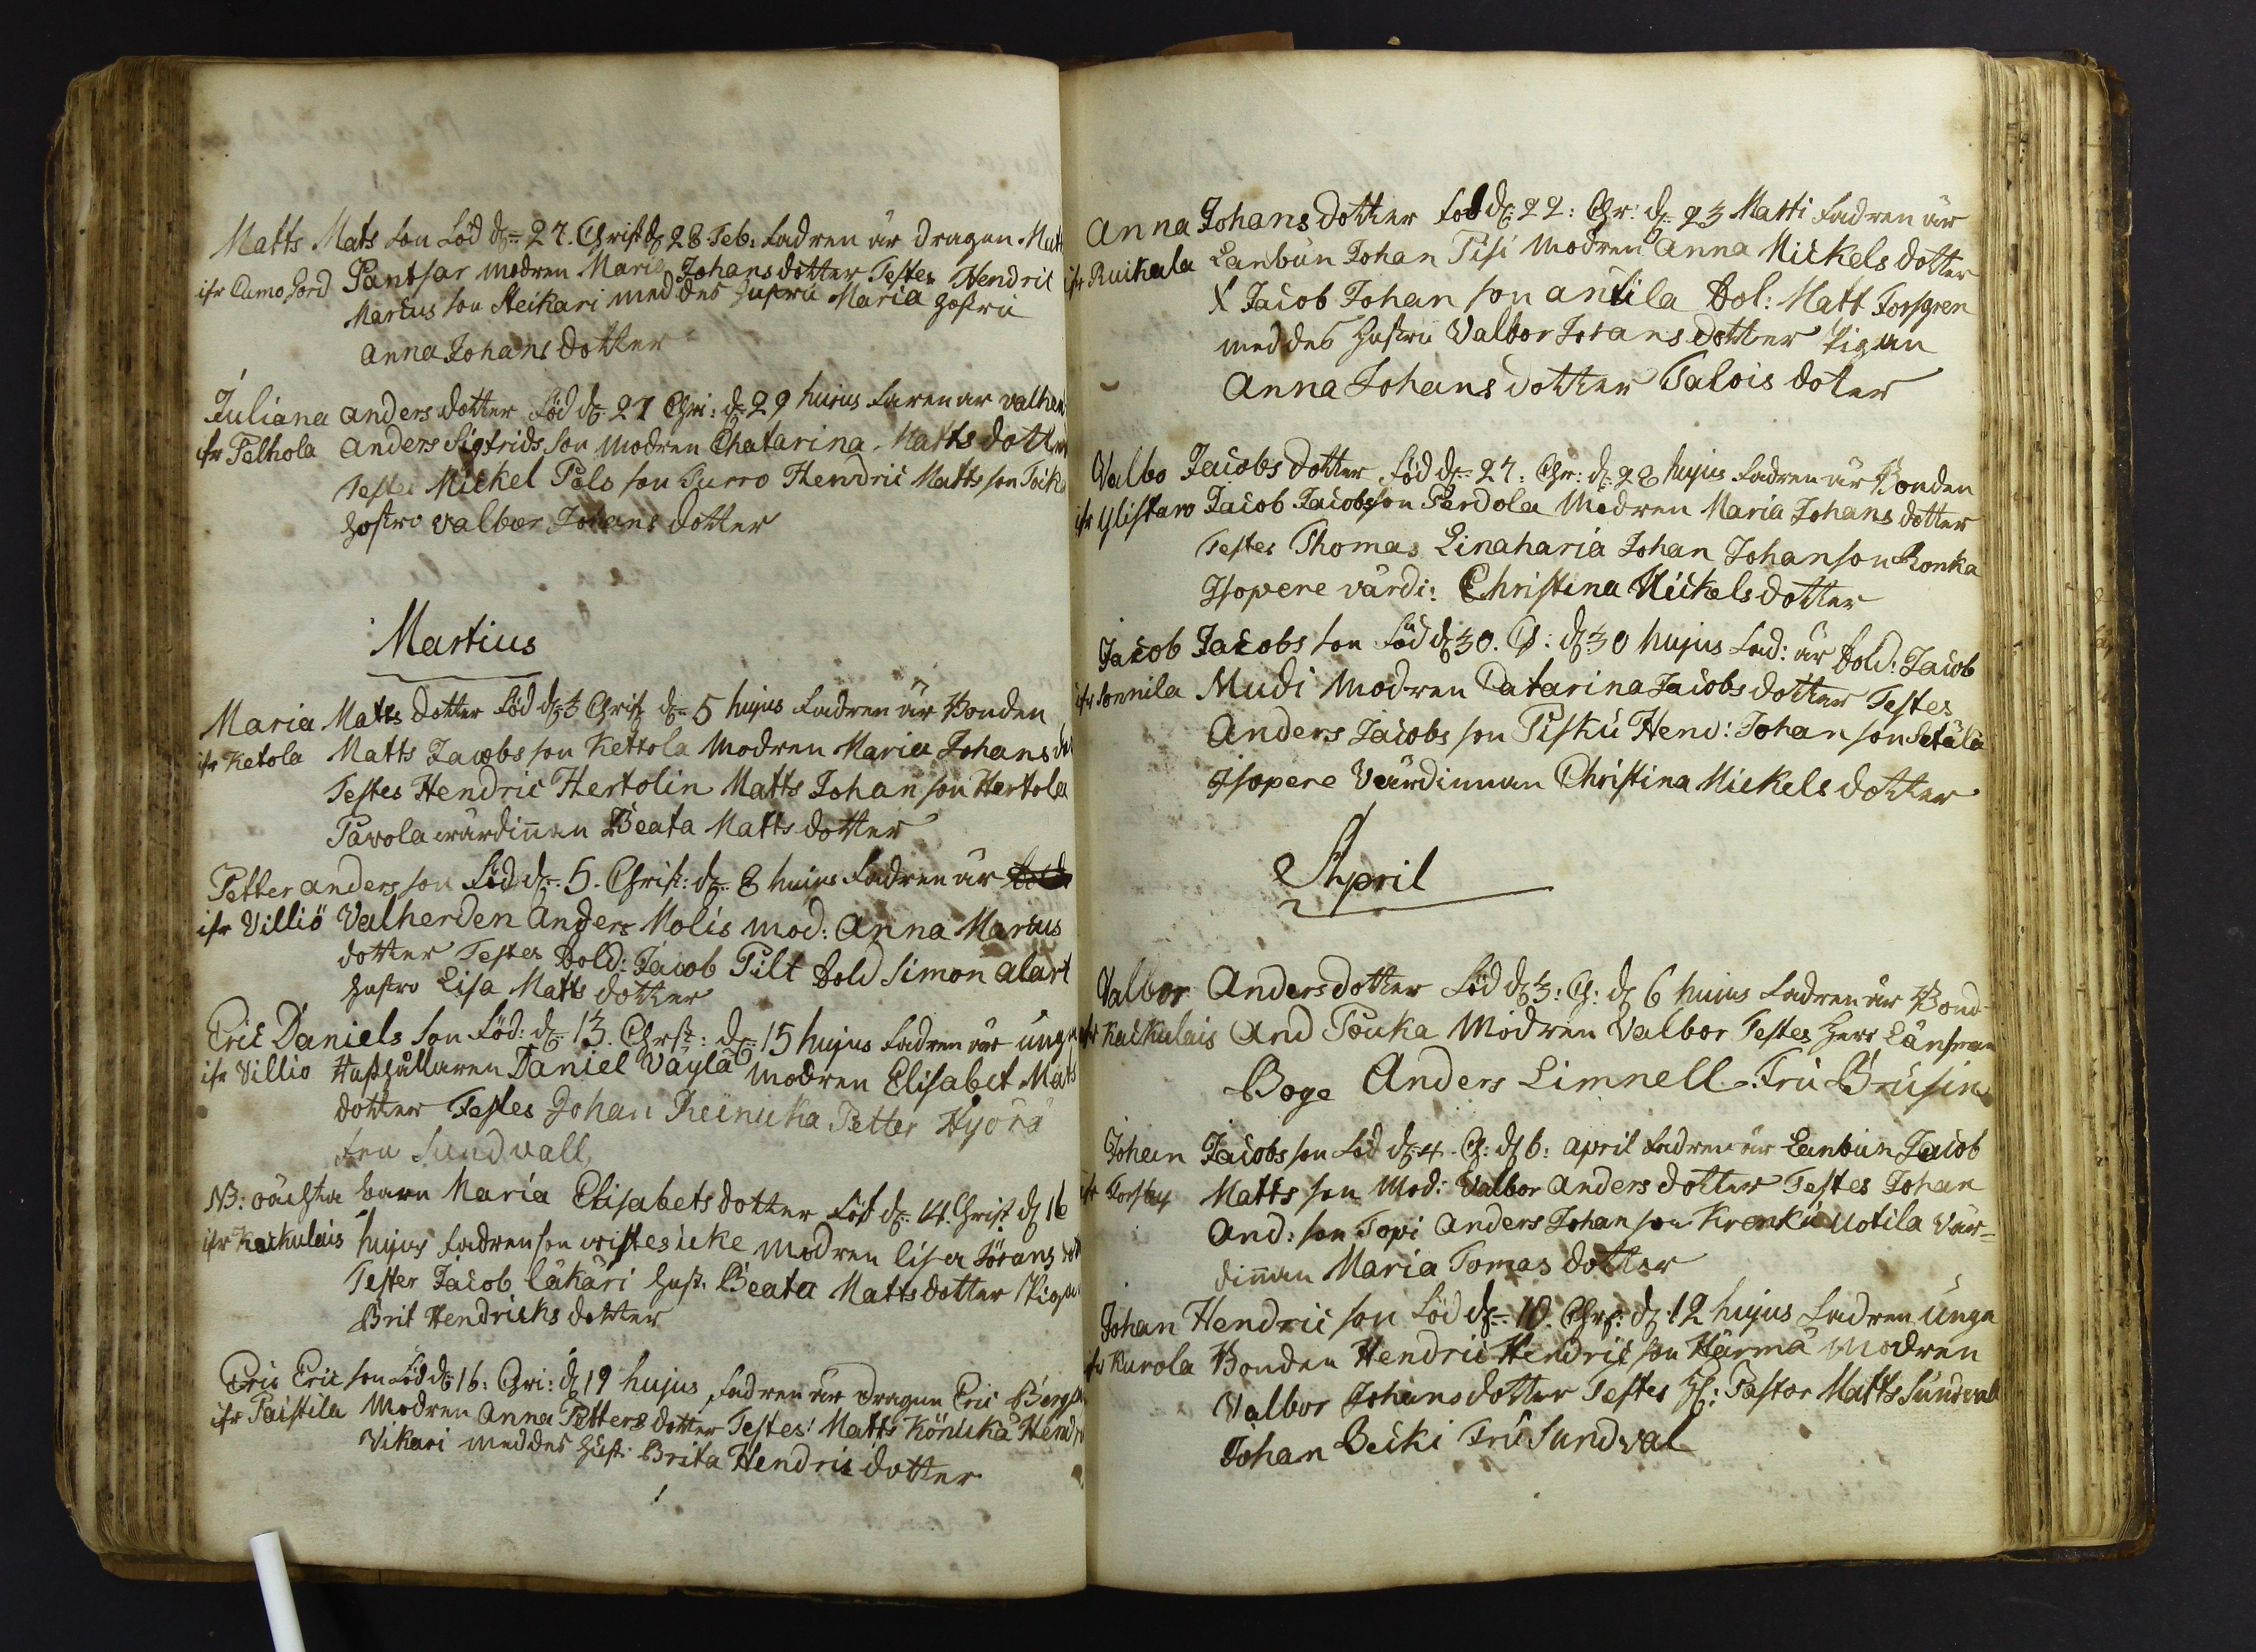 Matts Mats son Föd d. 27. Christ d 28. Feb. Fadren är dragun Matt
ifr Cumo Gord Pantsar modren Maria Johans dotter Testes Hendric
Marcus son Heikari med des hustru Maria hostru
Anna Johans dotter
Juliana anders dotter Föd d. 27 Chri: d 29 huius Faren ar valher
ifr Pelhola Anders Sigfrids son modren Chatarina Matts dotter
Testes Mickel Pels son Turro Hendric Matts son
hostro valbor Johans dotter
Martius
Maria Matts dotter Föd d 3 Christ d. 5 hujus Fadren är Bonden
ifr Ketola Matts Jacobs son Kettola Modren Maria Johans
Testes Hendric Hertolin Matts Johan son Hertola
Pavola wärdinnan Beata Matts dotter
Petter anders son Föd d. 5. Christ: d. 8 huius Fadren är
ifr Villiö Valherden Anders Molis mod: Anna Marcus
dotter Testes Sold: Jacob Pilt Sold Simon alart
hustro Lisa Matts dotter
Eric Daniels son Föd: d. 13. Christ: d. 15 hujus Fadren är unga
ifr Villio Hußhållaren Daniel Väylä modren Elisabet Mats
dotter Testes Johan Petter Hyörä
Fru Sundvall
NB: oächta barn Maria Elisabets dotter Föd d. 14. Christ d 16
ifr Kackulais hujus Fadren son wistes icke modren lisa Görans dott
Testes Jacob läkäri hust. Beata Matts dotter Pigan
Brit Hendricks dotter
Eric Eric son Föd d 16: Chri: d 19 hujus Fadren är dragun Eric
ifr Paistila Modren Anna Petters dotter Testes Matts Könickä
Vikari med des hust: Brita Hendric dotter
Anna Johans dotter Föd d. 22: Chr: d. 23 Matti Fadren är
ifr Ruikala Lanbun Johan Pisi Modren Anna Mickels dotter
X Jacob Johan son antila Sol: Matt Forsgren
med des hustru Valbor Johans dotter Pigan
Anna Johans dotter Talois doter
Valbo Jacobs dotter Föd d. 27: Chr: d. 28 hujus Fadren är Bonden
ifr Ylistaro Jacob Jacobsson Perdola Modren Maria Johans dotter
Testes Thomas Linaharja Johan Johanson Ronka
Isopere värdi: Christina Mickels dotter
Jacob Jacobs son Föd d 30. C: d 30 hujus Fad: är Sold: Jacob
ifr Sonnila Mudi Modren Catarina Jacobs dotter Testes
Anders Jacobs son Pisku Hend: Johan son Setälä
Isopere Värdinnan Christina Mickels dotter
April
Valbor Anders dotter Föd d 3: C: d 6 huius Fadren är Bond
ifr Kackulais And Pouka Modren Valbor Testes Herr Länsman
Boge Anders Limnell Fru Brusin
Johan Jacobs son Föd d 4. C: d 6: april Fadren är Lanbun Jacob
ifr Forsby Matts son Mod: Valbor Anders dotter Testes Johan
And: son Topi Anders Johan son Kronki uotila Vär-
dinnan Maria Tomas dotter
Johan Hendric son Föd d. 10. Chr: d 12 hujus Fadren unga
ifr Kurola Bonden Hendric Hendric son Härmä Modren
Valbor Johans dotter Testes H: Pastor Matts Sundvall
Johan Becki Fru Sundval